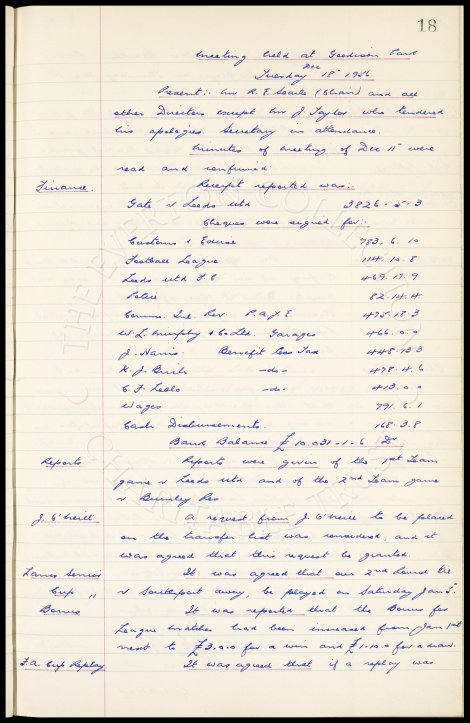 18
Meeting held at Goodison Park
Tuesday 18th Dec 1956.
Present:- Mr R. E. Searle (Chair) and all
other Directors except Mr J. Taylor who tendered
his apologies. Secretary in attendance.
Minutes of meeting of Dec 11th were
read and confirmed.
Finance. Receipt reported was:-
Gate v Leeds Utd 3826-5-3
Cheques were signed for:-
Customs & Excise 783.6.10
Football League 114.10.8
Leeds Utd F.C 469.17.9
Police 82.14.4
Comms. Inl. Rev. P.A.Y.E 475.18.3
W. L. Murphy & Co Ltd. Garages 466.0.0
J. Harris. Benefit less Tax 448.13.3
K. J. Birch -do- 478.4.6
C. F. Lello -do- 413.0.0
Wages 791.6.1
Cash Disbursements. 168.3.8
Bank Balance £10,031-1-6 Dr
Reports Reports were given of the 1st Team
game v Leeds Utd and of the 2nd Team game
v Burnley Res
J. O'Neill. A request from J. O'Neill to be placed
on the transfer list was considered, and it
was agreed that this request be granted.
Lancs Senior It was agreed that our 2nd Round tie
Cup " v Southport away, be played on Saturday Jan 5th.
Bonus It was reported that the Bonus for
League matches had been increased from Jan 1st
next to £3.0.0 for a win and £1.10.0 for a draw.
F.A. Cup Replay It was agreed that if a replay was